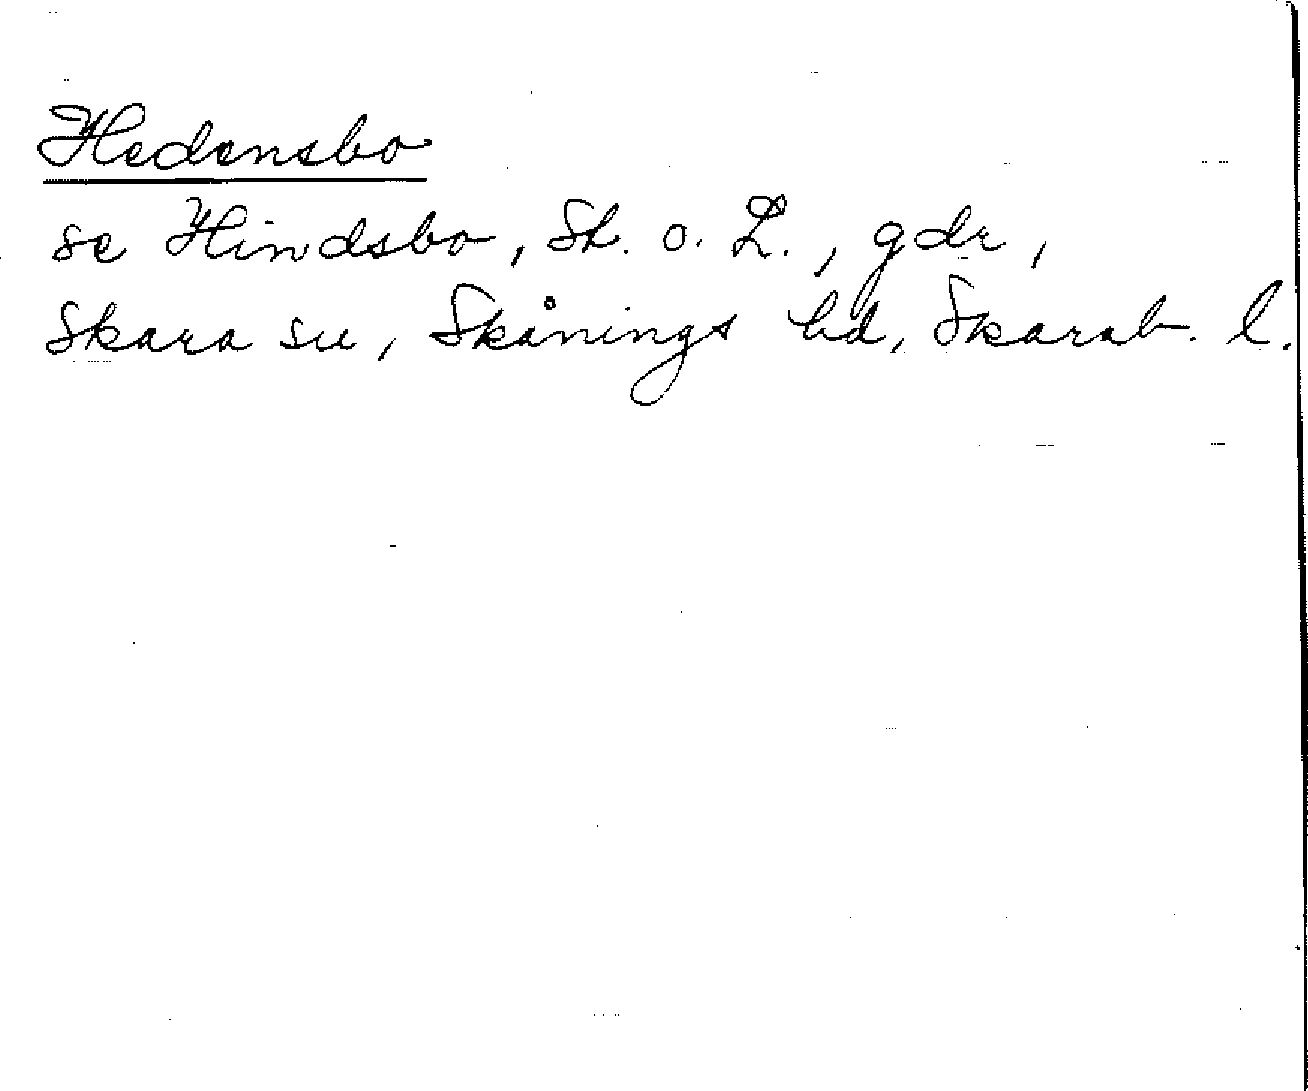 Hedensbo
se Hindsbo, St. o. L., gdr,
Skara sn, Skånings hd, Skarab. l.